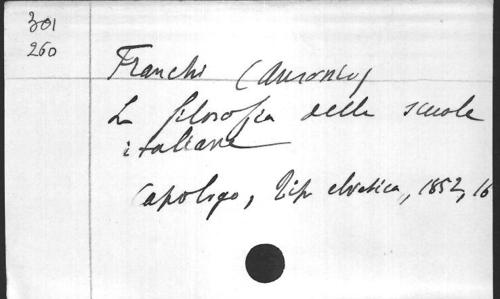 301
260
Franchi (Ausonio)
La filosofia delle scuole
italiane
Capolago, Tip. elvetica, 1852, 16